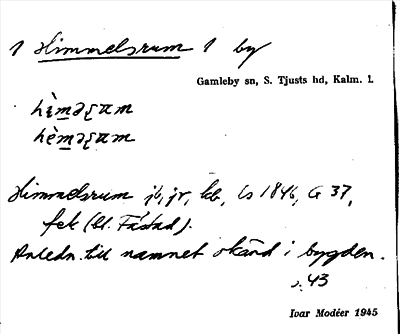 1 Himmelsrum 1 by
Gamleby sn, S. Tjusts hd, Kalm. l.
Himmelsrum jb, jr, kb, Ls 1846, G 37,
fek (bl. Fastad).
Anledn. till namnet okänd i bygden.
s. 43
Ivar Modéer 1945